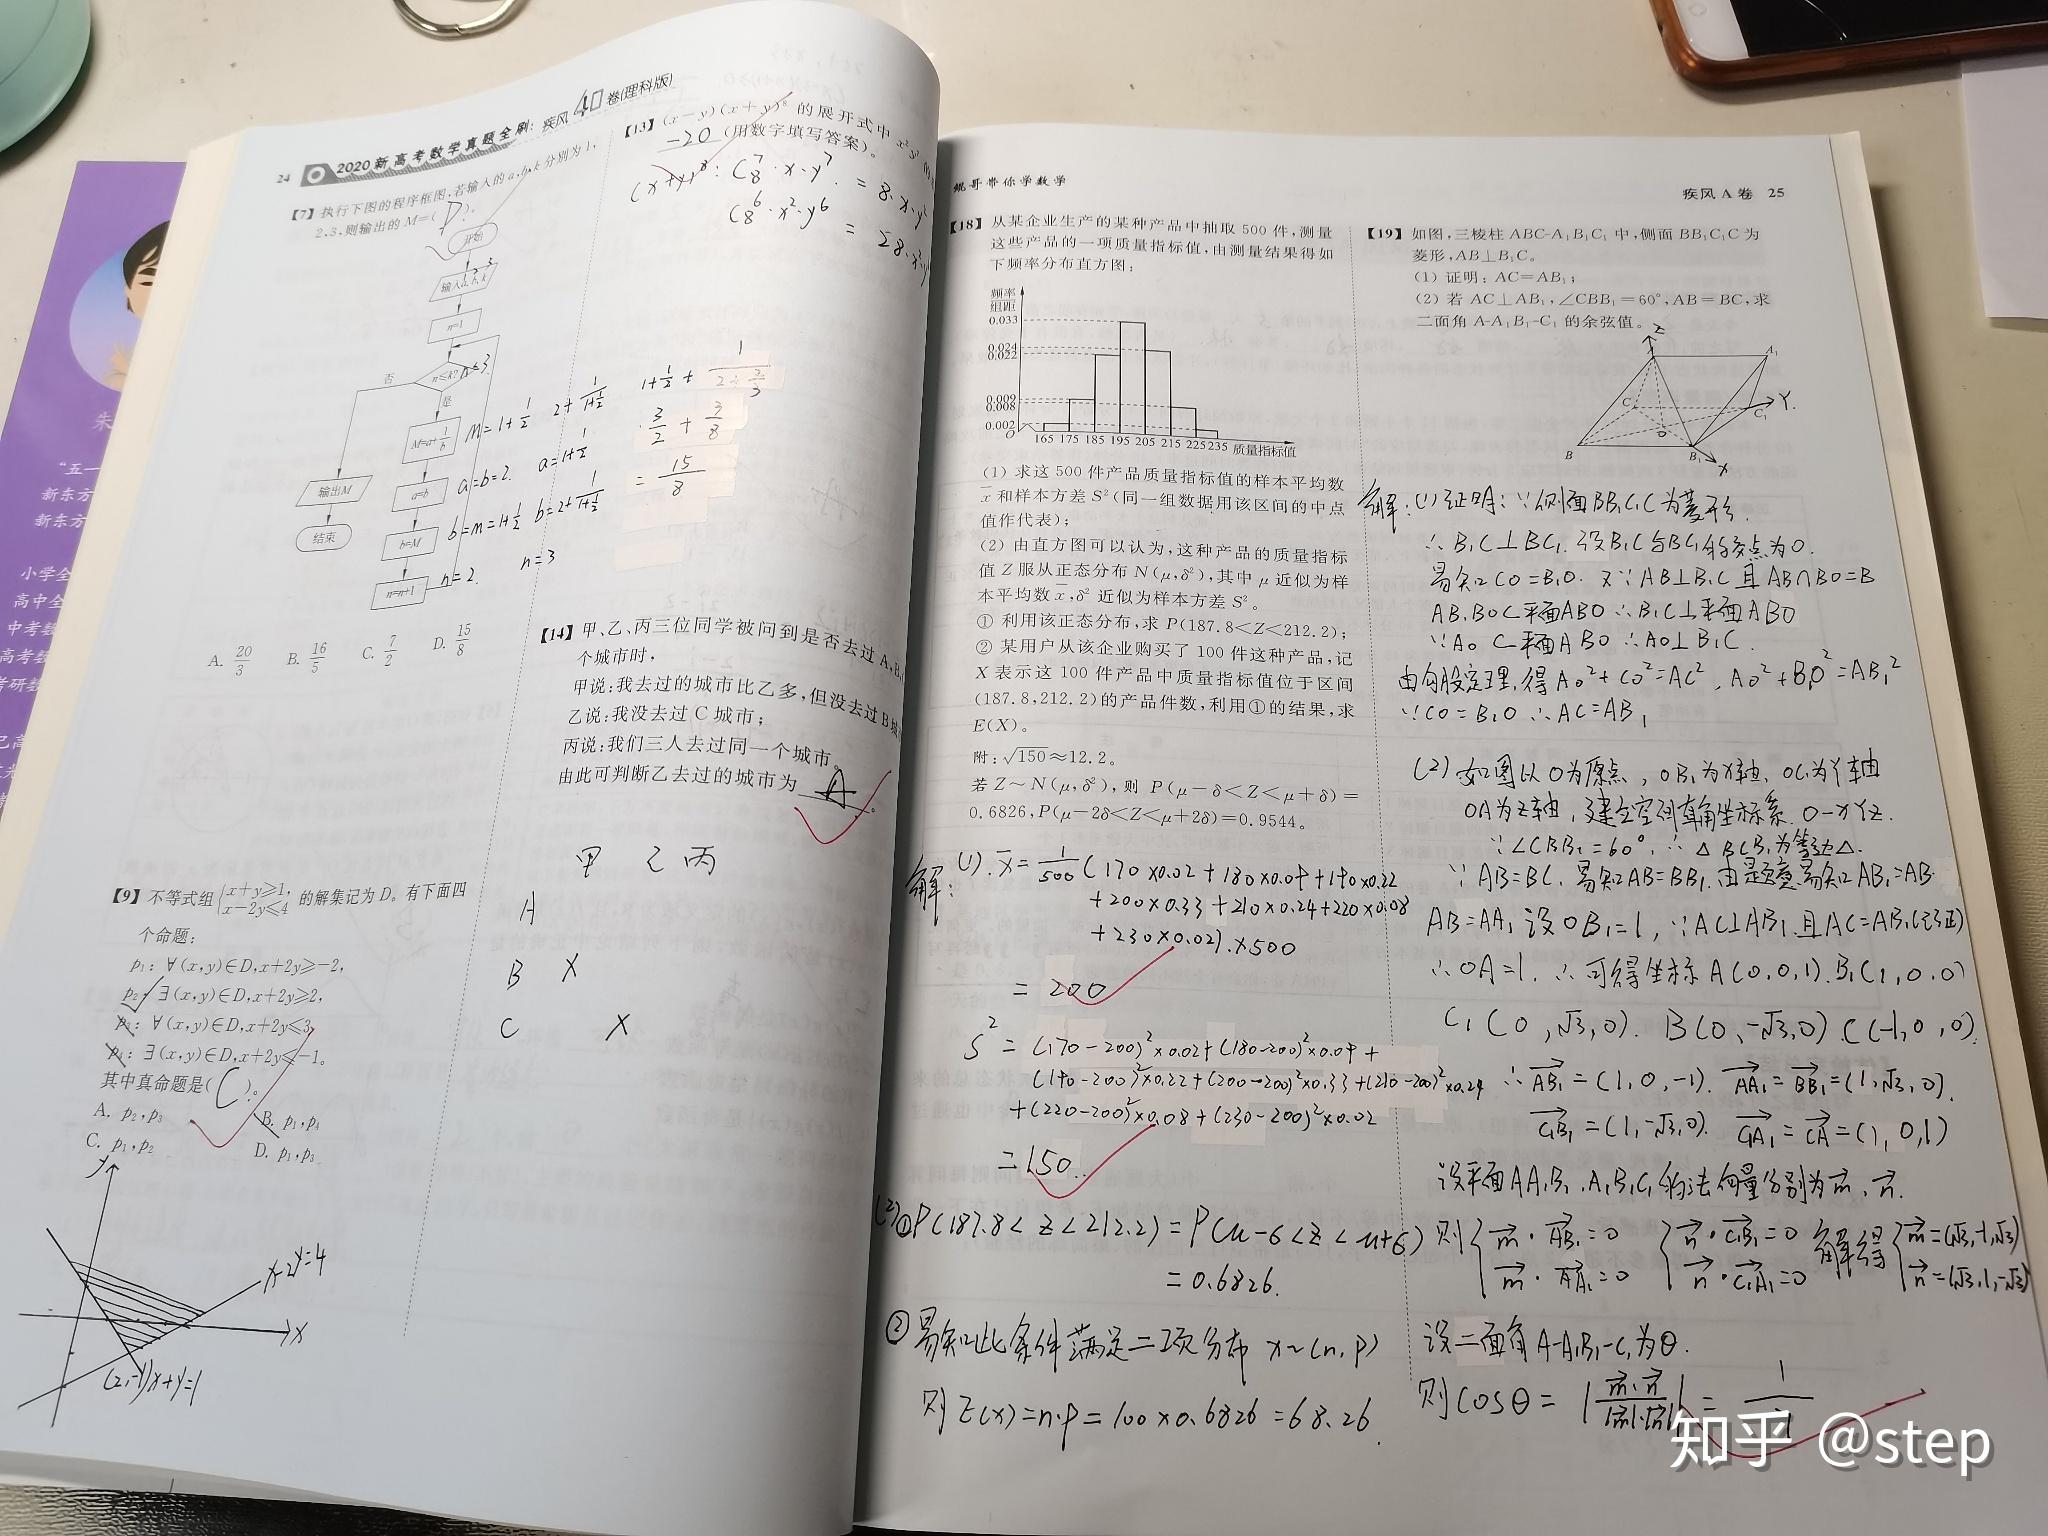 24 2020新高考数学真题全刷:疾风40卷(理科版)
【7】执行下图的程序框图,若输入的a,b,k分别为1,
2,3,则输出的M=( D )。
开始
输入a,b,k
n=1
n≤k?
否
是
M=a+1/b
a=b
b=M
n=n+1
输出M
结束
M=1+1/2
a=b=2.
b=M=1+1/2
n=2.
n=3
A. 20/3 B. 16/5 C. 7/2 D. 15/8
【9】不等式组{x+y≥1, x-2y≤4 的解集记为D。有下面四
个命题:
p₁:∀(x,y)∈D,x+2y≥-2,
p₂:∃(x,y)∈D,x+2y≥2,
p₃:∀(x,y)∈D,x+2y≤3
p₄:∃(x,y)∈D,x+2y≤-1。
其中真命题是( C )。
A. p₂,p₃ B. p₁,p₄
C. p₁,p₂ D. p₁,p₃
y
x-2y=4
x
x+y=1
【13】(x-y)(x+y)⁸的展开式中
-20 (用数字填写答案)。
3/2 + 3/8
= 15/8
【14】甲、乙、丙三位同学被问到是否去过A,B,
个城市时,
甲说:我去过的城市比乙多,但没去过B城
乙说:我没去过C城市;
丙说:我们三人去过同一个城市。
由此可判断乙去过的城市为 A 。
甲 乙 丙
A
B X
C X
鲲哥带你学数学
疾风A卷 25
【18】从某企业生产的某种产品中抽取500件,测量
这些产品的一项质量指标值,由测量结果得如
下频率分布直方图:
频率
组距
0.033
0.024
0.022
0.009
0.008
0.002
O 165 175 185 195 205 215 225 235 质量指标值
(1)求这500件产品质量指标值的样本平均数
x和样本方差S²(同一组数据用该区间的中点
值作代表);
(2)由直方图可以认为,这种产品的质量指标
值Z服从正态分布N(μ,δ²),其中μ近似为样
本平均数x,δ²近似为样本方差S²。
①利用该正态分布,求P(187.8<Z<212.2);
②某用户从该企业购买了100件这种产品,记
X表示这100件产品中质量指标值位于区间
(187.8,212.2)的产品件数,利用①的结果,求
E(X)。
附:√150≈12.2。
若Z~N(μ,δ²),则P(μ-δ<Z<μ+δ)=
0.6826,P(μ-2δ<Z<μ+2δ)=0.9544。
解:(1).x̄=1/500(170×0.02+180×0.09+190×0.22
+200×0.33+210×0.24+220×0.08
+230×0.02).×500
=200
S²=(170-200)²×0.02+(180-200)²×0.09+
(190-200)²×0.22+(200-200)²×0.33+(210-200)²×0.24
+(220-200)²×0.08+(230-200)²×0.02
=150.
(2)①P(187.8<Z<212.2)=P(μ-σ<Z<μ+σ)
=0.6826.
②易知此条件满足二项分布 X~(n,p)
则E(X)=n·p=100×0.6826=68.26.
【19】如图,三棱柱ABC-A₁B₁C₁中,侧面BB₁C₁C为
菱形,AB⊥B₁C。
(1)证明:AC=AB₁;
(2)若AC⊥AB₁,∠CBB₁=60°,AB=BC,求
二面角A-A₁B₁-C₁的余弦值。
Z
A A₁
C C₁ Y.
O
B B₁
X
解:(1)证明:∵侧面BB₁C₁C为菱形.
∴B₁C⊥BC₁.设B₁C与BC₁的交点为O.
易知CO=B₁O.又∵AB⊥B₁C且AB∩BO=B
AB,BO⊂平面ABO∴B₁C⊥平面ABO
∵AO⊂平面ABO∴AO⊥B₁C.
由勾股定理,得AO²+CO²=AC²,AO²+B₁O²=AB₁²
∵CO=B₁O∴AC=AB₁
(2)如图以O为原点,OB₁为X轴,OC₁为Y轴
OA为Z轴,建立空间直角坐标系O-XYZ.
∵∠CBB₁=60°,∴△BCB₁为等边△.
∵AB=BC,易知AB=BB₁.由题意易知AB₁=AB
AB=AA₁设OB₁=1,∵AC⊥AB₁且AC=AB₁(已证)
∴OA=1.∴可得坐标A(0,0,1).B₁(1,0,0)
C₁(0,√3,0).B(0,-√3,0).C(-1,0,0).
∴AB₁=(1,0,-1).AA₁=BB₁=(1,√3,0).
C₁B₁=(1,-√3,0).C₁A₁=CA=(1,0,1)
设平面AA₁B₁,A₁B₁C₁的法向量分别为m,n.
则{m·AB₁=0 {n·C₁B₁=0 解得{m=(√3,-1,√3)
m·AA₁=0 n·C₁A₁=0 n=(√3,1,-√3)
设二面角A-A₁B₁-C₁为θ.
则cosθ=|m·n/|m|·|n||=
知乎 @step